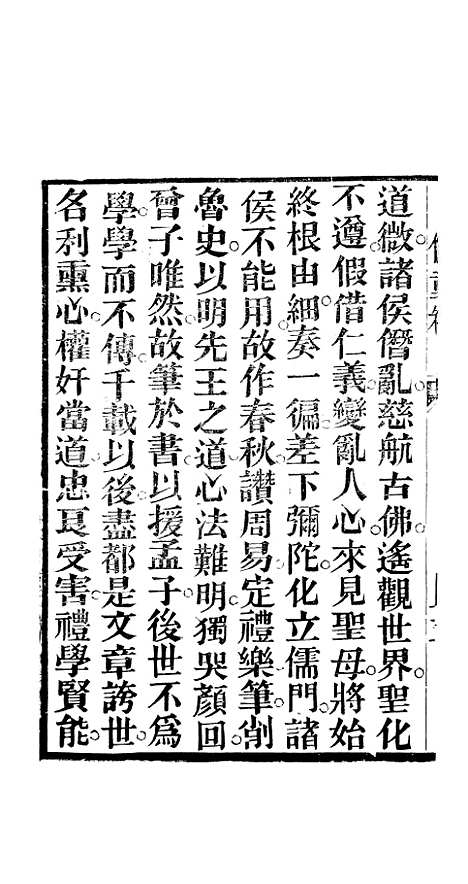 道微。諸侯僭亂。慈航古佛。遙觀世界。聖化
不遵。假借仁義。變亂人心。來見聖母。將始
終根由。細奏一徧。差下彌陀。化立儒門。諸
侯不能用。故作春秋。讚周易。定禮樂。筆削
魯史。以明先王之道。心法難明。獨哭顏回。
曾子唯然。故筆於書。以援孟子。後世不爲
學。學而不傳。千載以後。盡都是文章誇世。
名利熏心。權奸當道。忠良受害。禮學賢能。